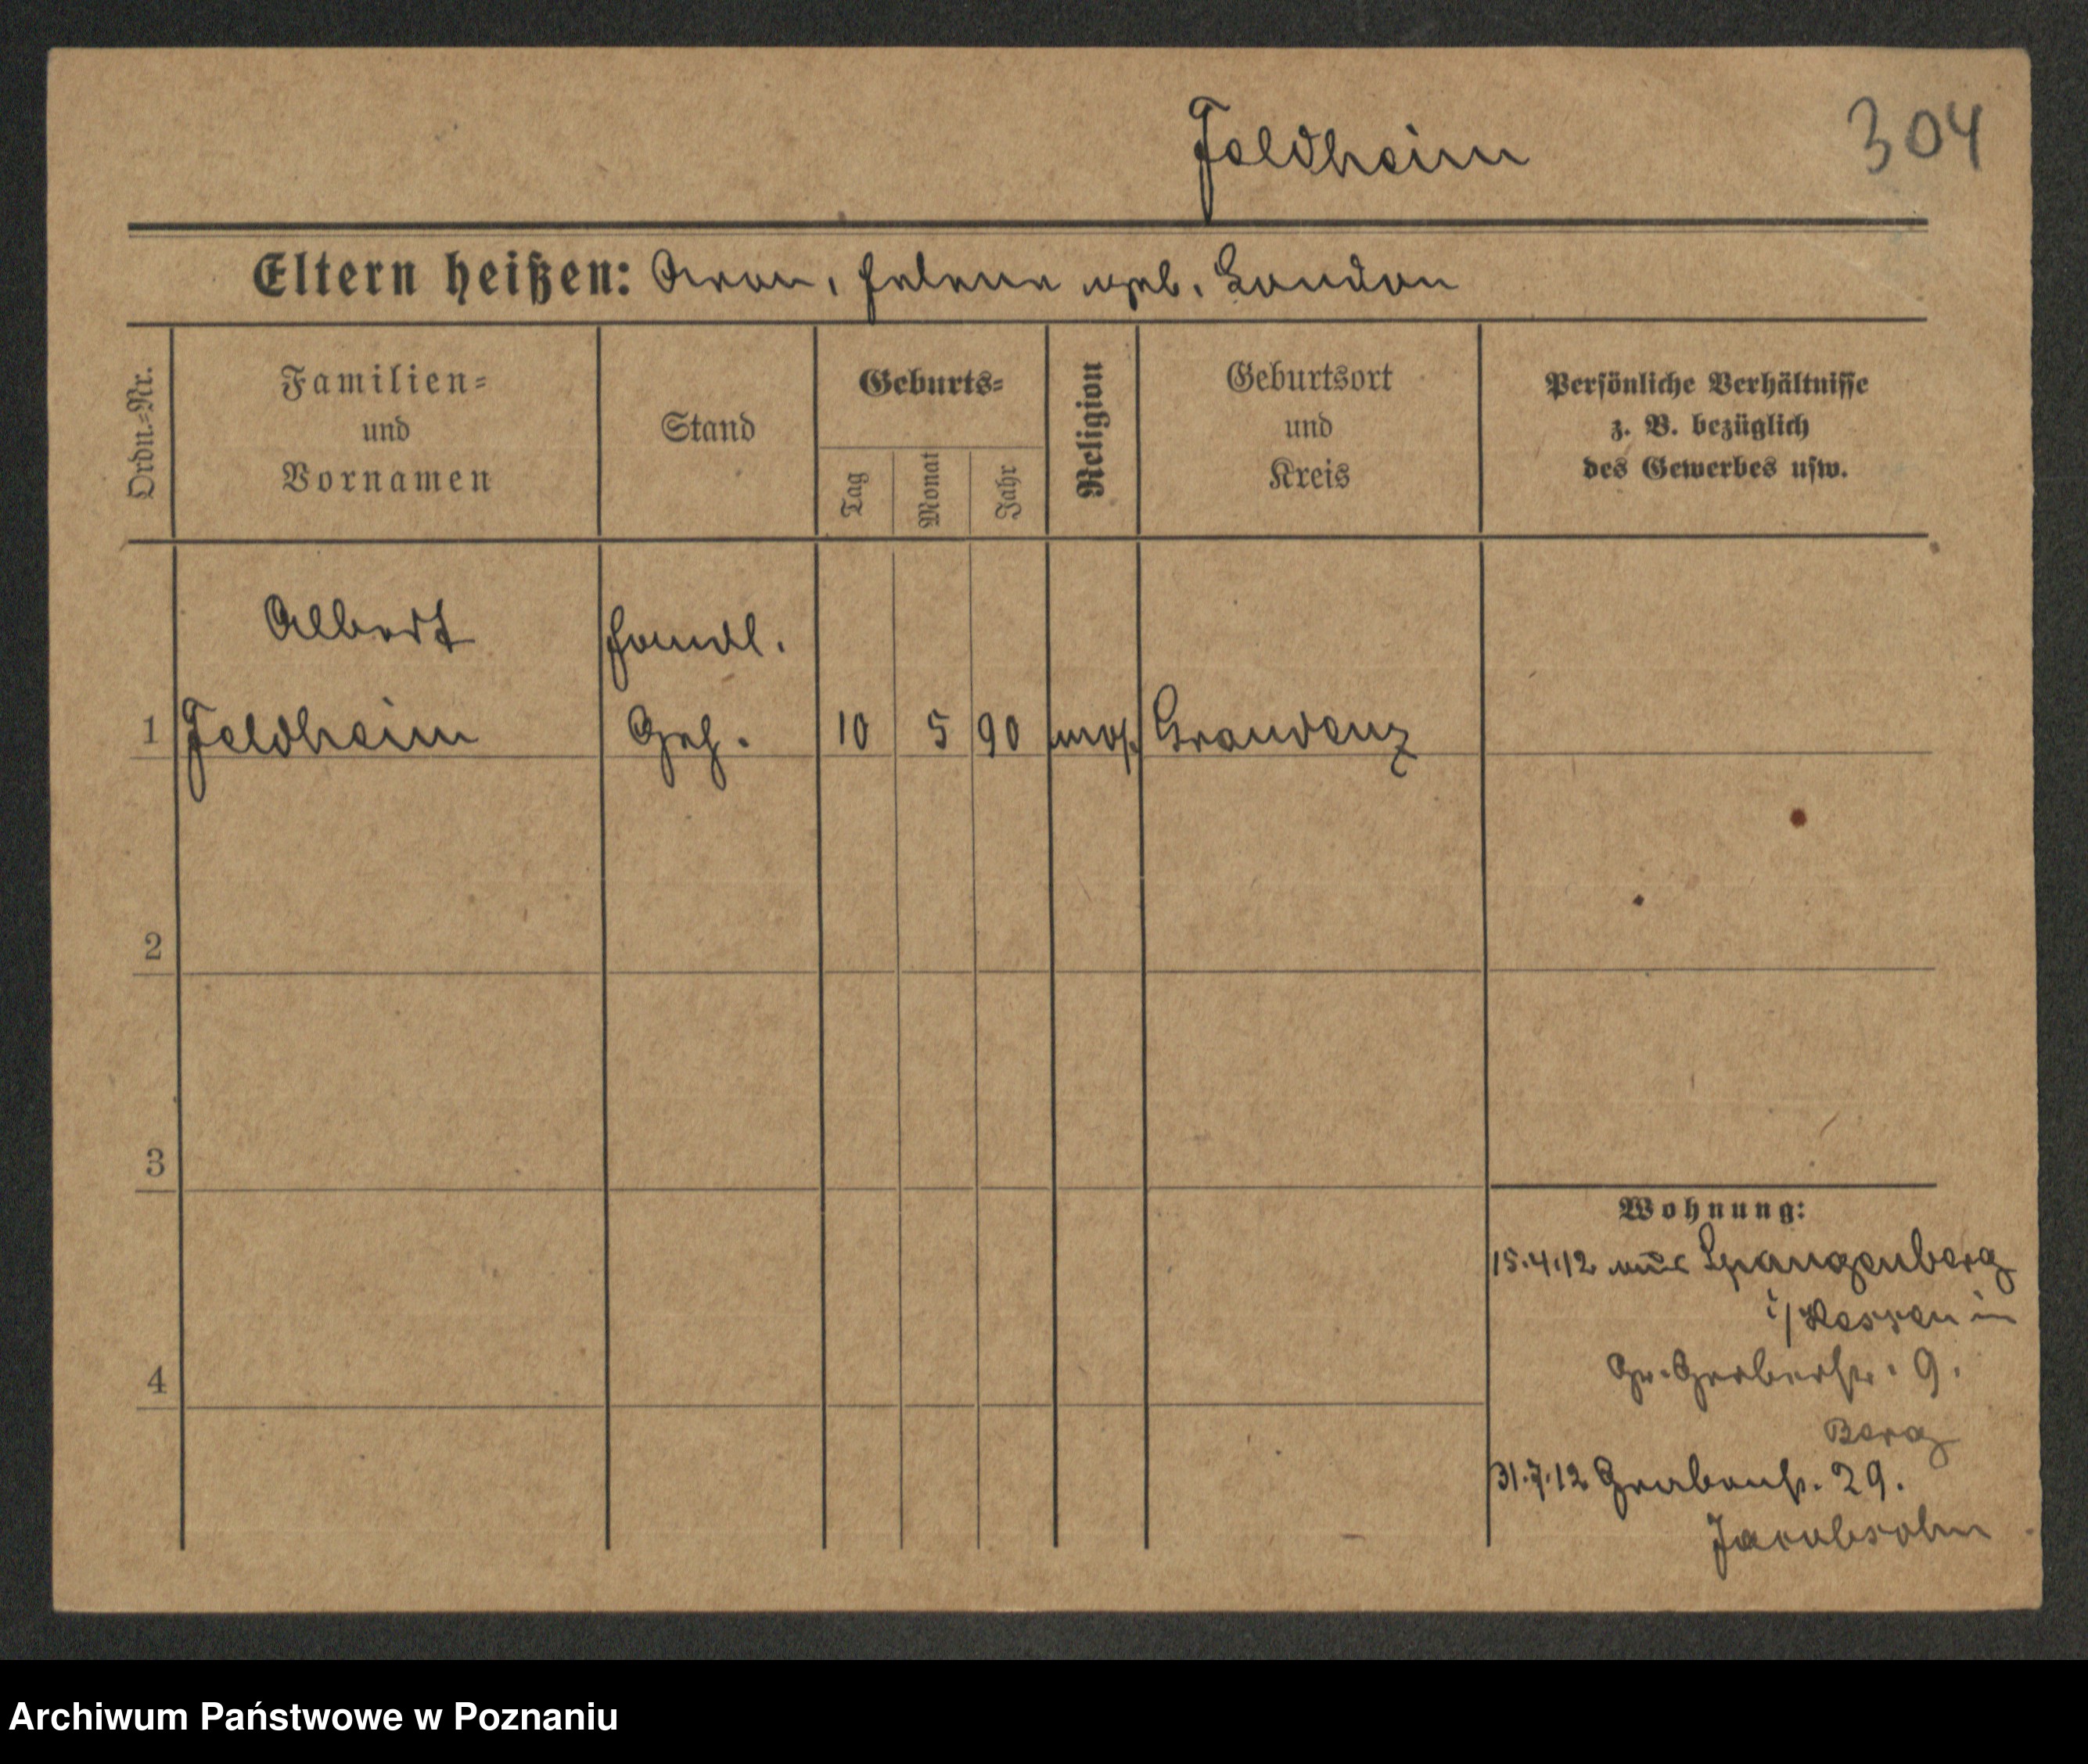 Feldheim
304
Eltern heißen: Aron, Helene geb. London
Ordn.=Nr.
Familien=
und
Vornamen
Stand
Geburts=
Tag
Monat
Jahr
Religion
Geburtsort
und
Kreis
Persönliche Verhältnisse
z. B. bezüglich
des Gewerbes usw.
Albert Handl.
1 Feldheim Geh. 10 5 90 mos. Graudenz
2
3
4
Wohnung:
15.4.12 aus Spangenberg
i/Hessen in
Gr. Gerberstr. 9.
Berg
31.7.12 Grabenstr. 29.
Jacobsohn
Archiwum Państwowe w Poznaniu